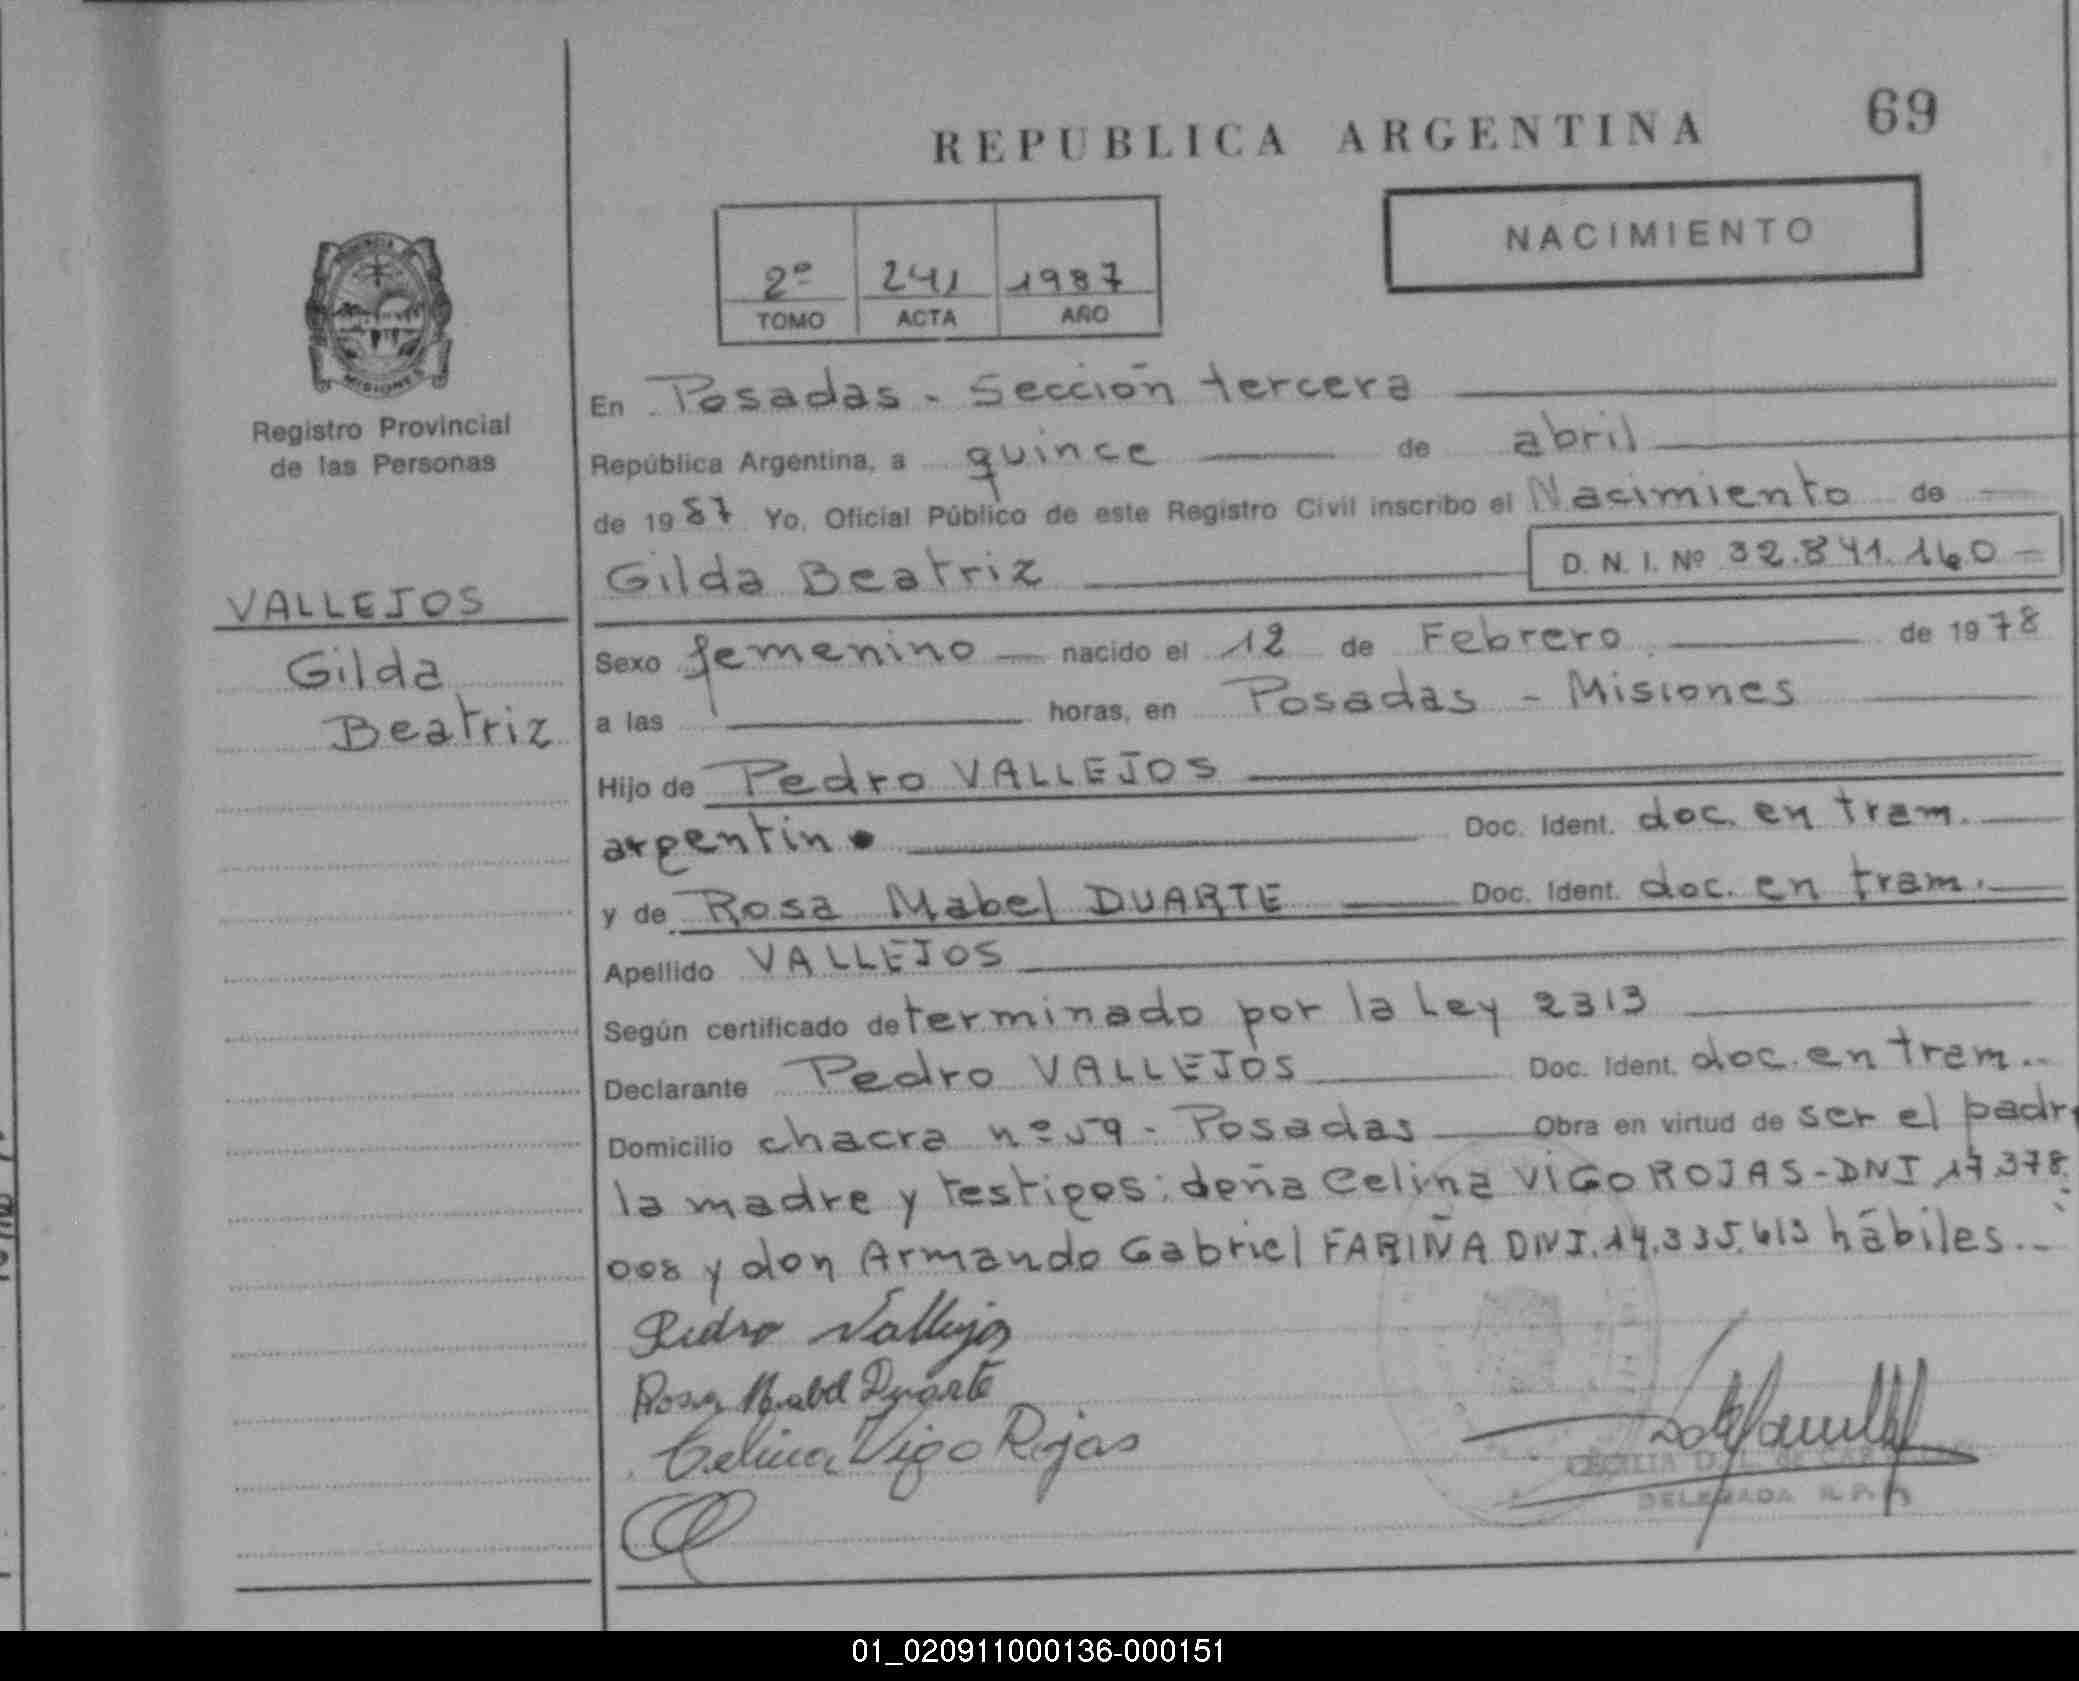 REPUBLICA ARGENTINA
69
NACIMIENTO
2º 241 1987
TOMO ACTA AÑO
MISIONES
Registro Provincial
de las Personas
VALLEJOS
Gilda
Beatriz
En Posadas - Sección tercera
República Argentina, a quince de abril
de 1987 Yo, Oficial Público de este Registro Civil inscribo el Nacimiento de
Gilda Beatriz D. N. I. Nº 32.841.160
Sexo femenino nacido el 12 de Febrero de 1978
a las horas, en Posadas - Misiones
Hijo de Pedro VALLEJOS
argentino Doc. Ident. doc. en tram.
y de Rosa Mabel DUARTE Doc. Ident. doc. en tram.
Apellido VALLEJOS
Según certificado determinado por la Ley 2313
Declarante Pedro VALLEJOS Doc. Ident. doc. en tram..
Domicilio chacra nº 59 - Posadas Obra en virtud de ser el padr
la madre y testigos: doña Celina VIGO ROJAS - DNI 17.378.
008 y don Armando Gabriel FARIÑA DNI. 14.335.613 hábiles..
Pedro Vallejos
Rosa Mabel Duarte
Celina Vigo Rojas
CECILIA D. L. de
DELEGADA R. P.
01_020911000136-000151